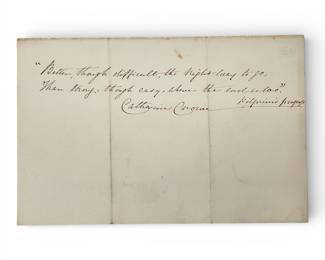 "Better, though difficult, the right way to go,
Than wrong, though easy, where the end is woe."
Catharine Pilgrim's Progress